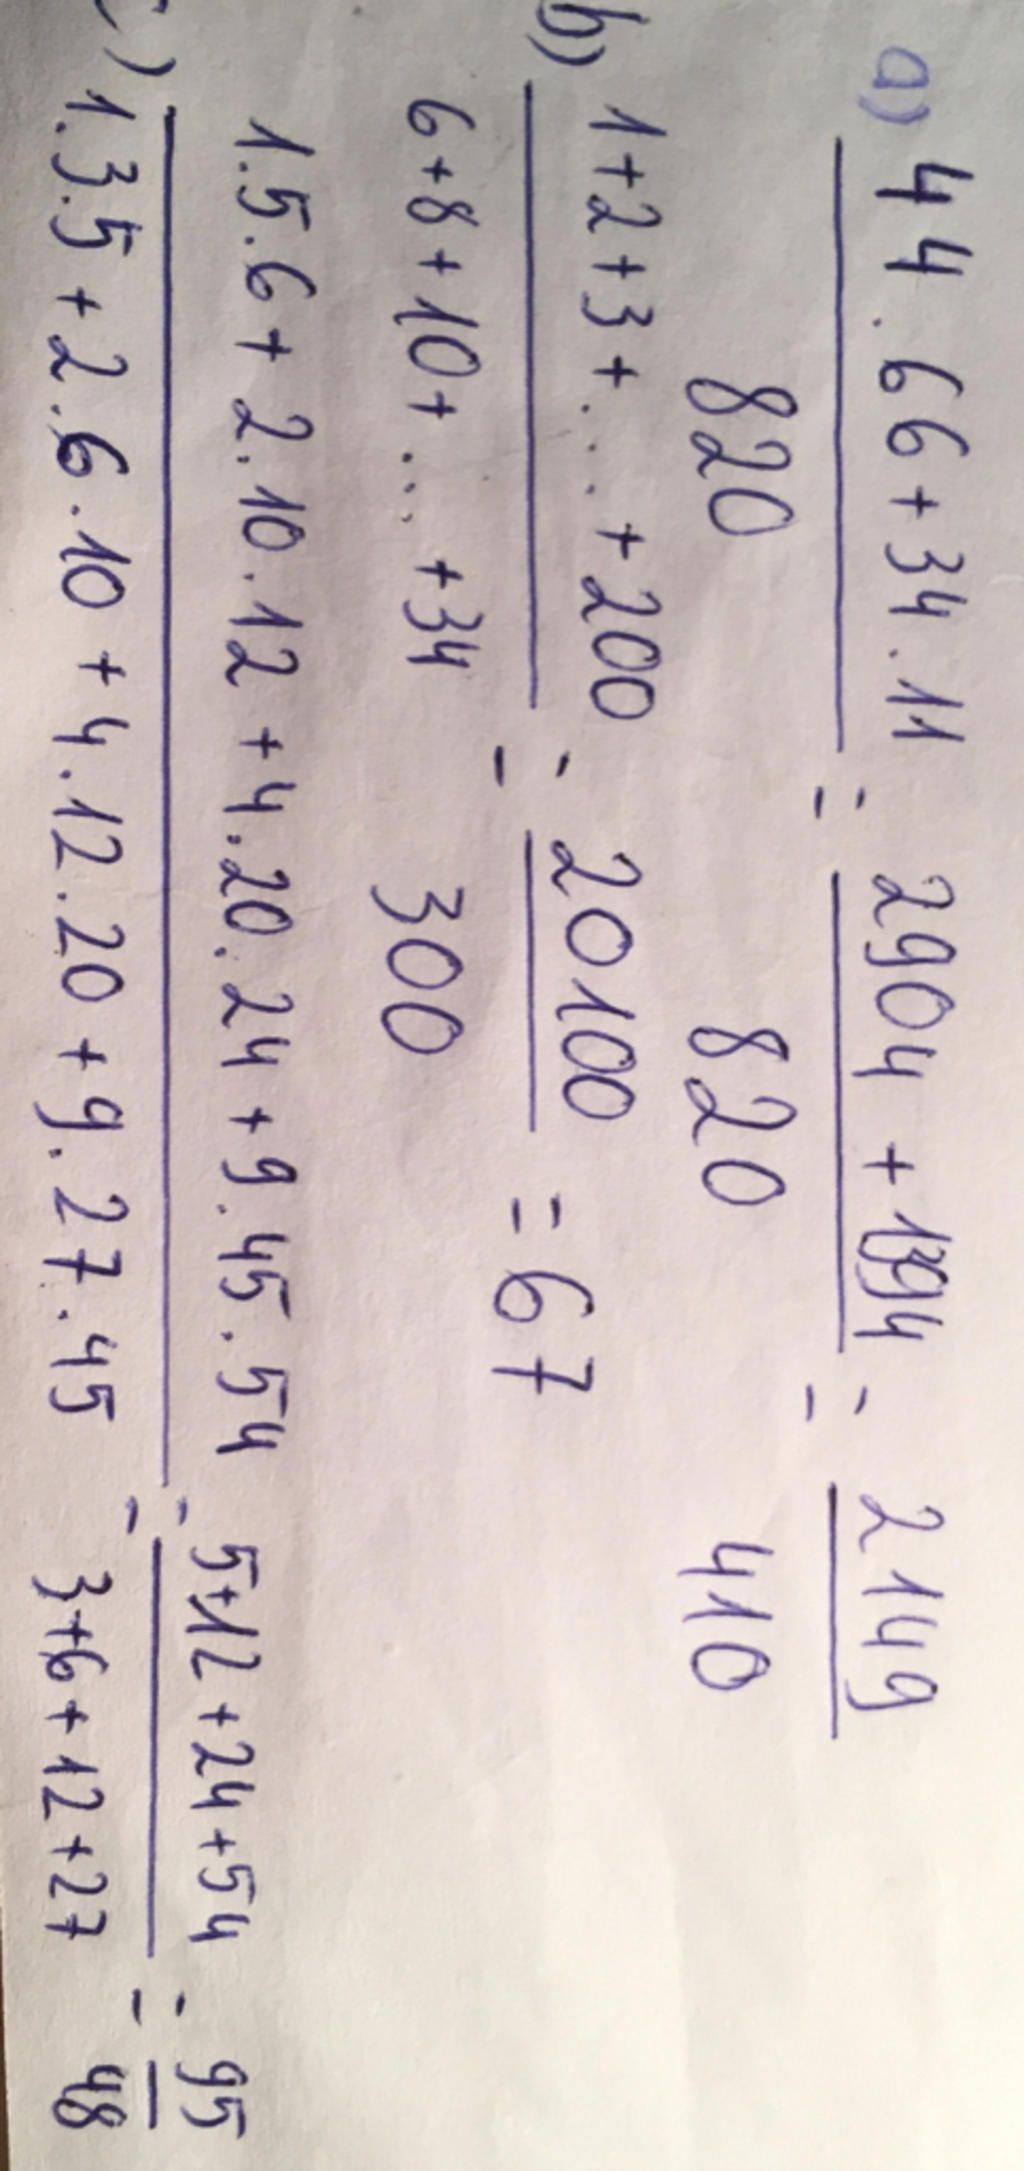 a) 44.66+34.11 = 2904 + 1394 = 2149
820 820 410
b) 1+2+3+...+200 = 20100 = 67
6+8+10+...+34 300
c) 1.5.6+2.10.12+4.20.24+9.45.54 = 5+12+24+54 = 95
1.3.5+2.6.10+4.12.20+9.27.45 3+6+12+27 48